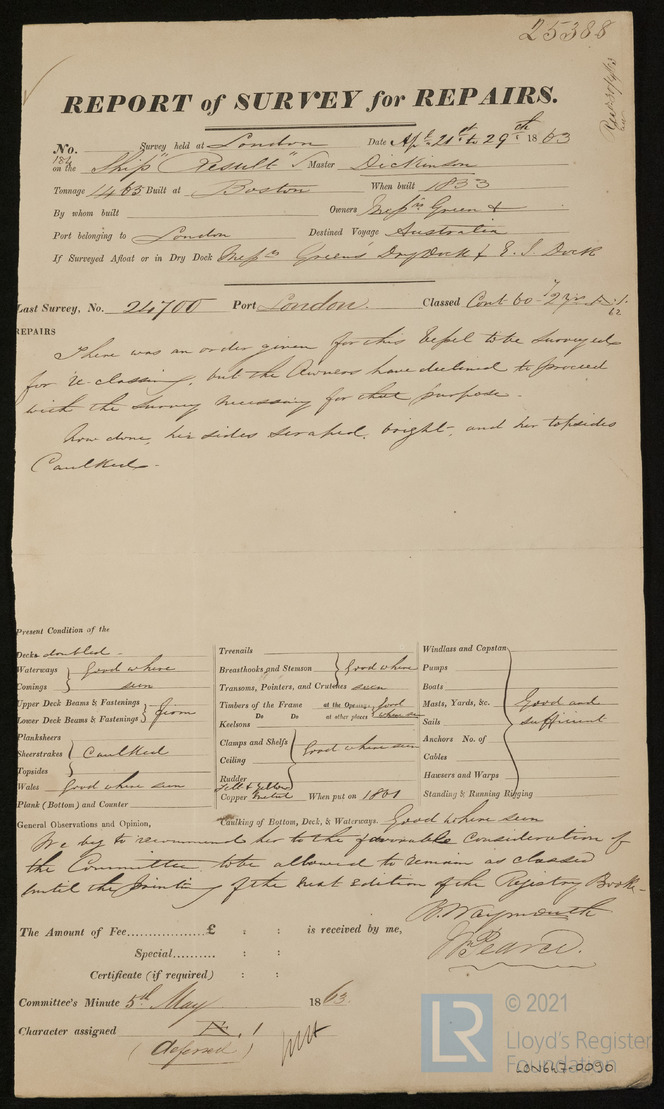 25388
REPORT of SURVEY for REPAIRS.
No. 184 Survey held at London Date Apl. 21st to 29th 1863
on the Ship "Result" Master Dickinson
Tonnage 1465 Built at Boston When built 1853
By whom built Owners Messrs Green &
Port belonging to London Destined Voyage Australia
If Surveyed Afloat or in Dry Dock Messrs Green's Dry Dock & E. I. Dock
Last Survey, No. 24700 Port London. Classed Cont 60 - 7 yrs
62
REPAIRS
There was an order given for this Vessel to be surveyed
for re-classing, but the Owners have declined to proceed
with the survey necessary for that purpose.
Now done, her sides scraped, bright, and her topsides
Caulked.
Present Condition of the
Decks doubled
Waterways } Good where
Comings } seen
Upper Deck Beams & Fastenings }
Lower Deck Beams & Fastenings } firm
Planksheers
Sheerstrakes } Caulked
Topsides
Wales good where seen
Plank (Bottom) and Counter
Treenails
Breasthooks and Stemson } Good where
Transoms, Pointers, and Crutches seen
Timbers of the Frame at the Openings good
Do Do at other places where seen
Keelsons
Clamps and Shelfs } Good where seen
Ceiling
Rudder
Felt & Yellow
Copper Metal When put on 1861
Windlass and Capstan
Pumps
Boats
Masts, Yards, &c. Good and
Sails sufficient
Anchors No. of
Cables
Hawsers and Warps
Standing & Running Rigging
General Observations and Opinion, Caulking of Bottom, Deck, & Waterways. Good where seen
We beg to recommend her to the favorable consideration of
the Committee to be allowed to remain as classed
until the printing of the next edition of the Registry Book
B. Waymouth
The Amount of Fee............... £ : : is received by me,
J Pearce.
Special.......... : :
Certificate (if required) : :
Committee's Minute 5th May 1863
Character assigned
(deferred)
LR © 2021
Lloyd's Register
Foundation
LON647-0090